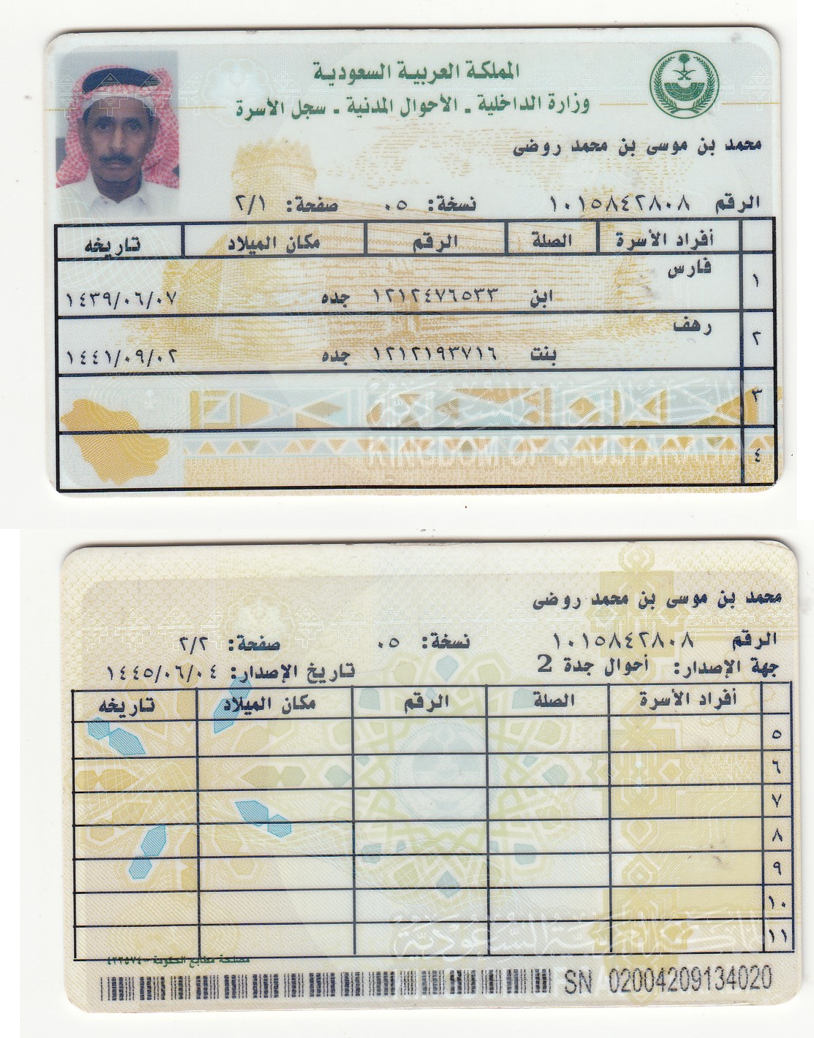 المملكة العربية السعودية
وزارة الداخلية - الأحوال المدنية - سجل الأسرة
محمد بن موسى بن محمد روضى
الرقم ١٠١٥٨٤٢٨٠٨ نسخة: ٠٥ صفحة: ٢/١
أفراد الأسرة الصلة الرقم مكان الميلاد تاريخه
١ فارس
ابن ١٢١٢٤٧٦٥٣٣ جده ١٤٣٩/٠٦/٠٧
٢ رهف
بنت ١٢١٢١٩٣٧١٦ جده ١٤٤١/٠٩/٠٢
٣
٤
KINGDOM OF SAUDI ARABIA
محمد بن موسى بن محمد روضى
الرقم ١٠١٥٨٤٢٨٠٨ نسخة: ٠٥ صفحة: ٢/٢
جهة الإصدار: أحوال جدة 2 تاريخ الإصدار: ١٤٤٥/٠٦/٠٤
أفراد الأسرة الصلة الرقم مكان الميلاد تاريخه
٥
٦
٧
٨
٩
١٠
١١
SN 02004209134020